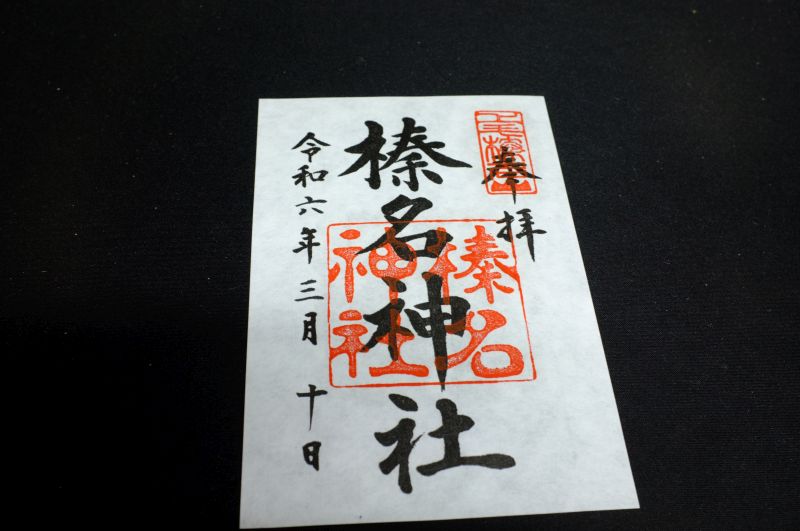 奉拝
榛名神社
榛名神社
令和六年三月十日